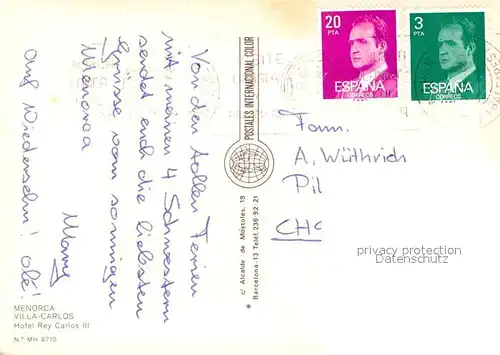 Von den tollen Ferien
mit meinen 4 Schwestern
sendet euch die liebsten
Grüsse vom sonnigen
Menorca
Mary
auf Wiedersehn! olé!
20
PTA
ESPAÑA
CORREOS
3
PTA
ESPAÑA
CORREOS
Fam.
A. Wüthrich
CH
privacy protection
Datenschutz
POSTALES INTERNACIONAL COLOR
* c/ Alcalde de Móstoles, 19
Barcelona-13 Telef. 236-92-21
MENORCA
VILLA-CARLOS
Hotel Rey Carlos III
N.º MH 8710